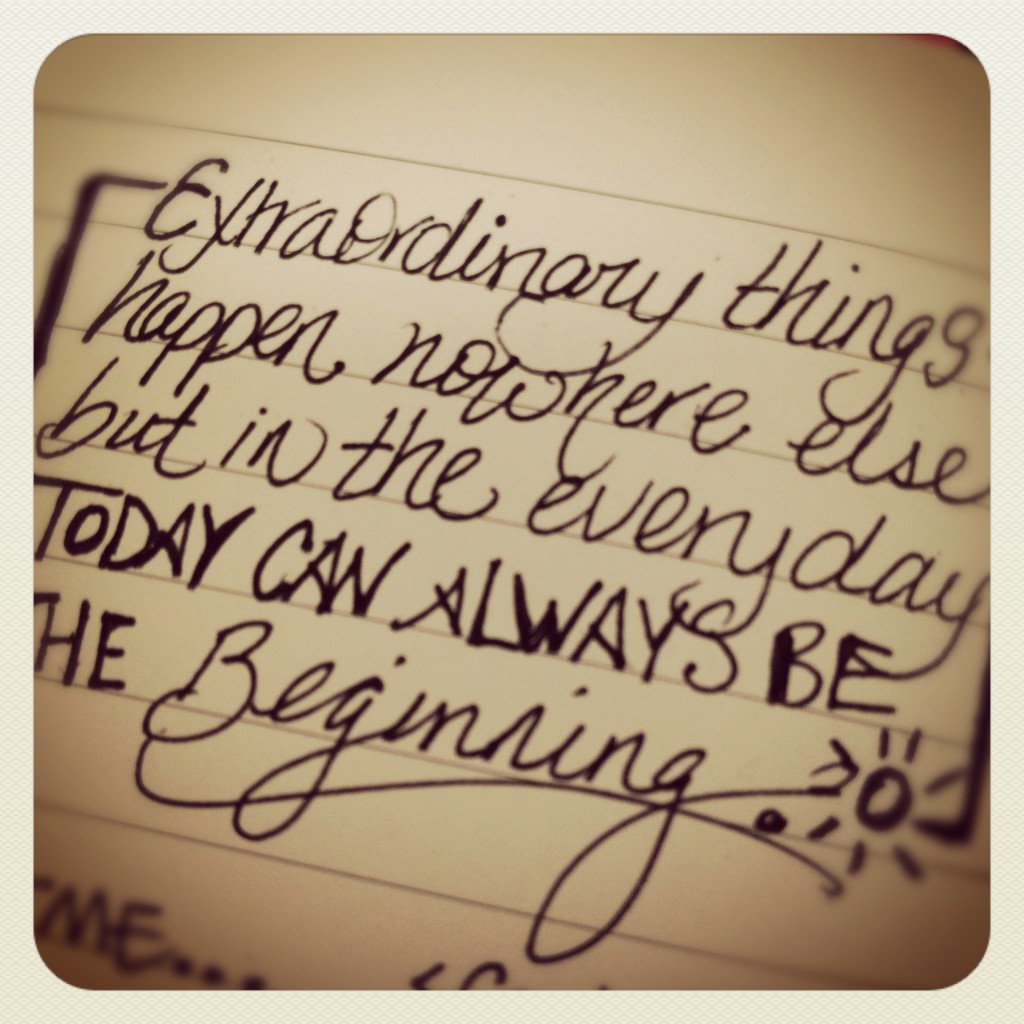 Extraordinary things
happen nowhere else
but in the everyday
TODAY CAN ALWAYS BE
THE Beginning.
ME...